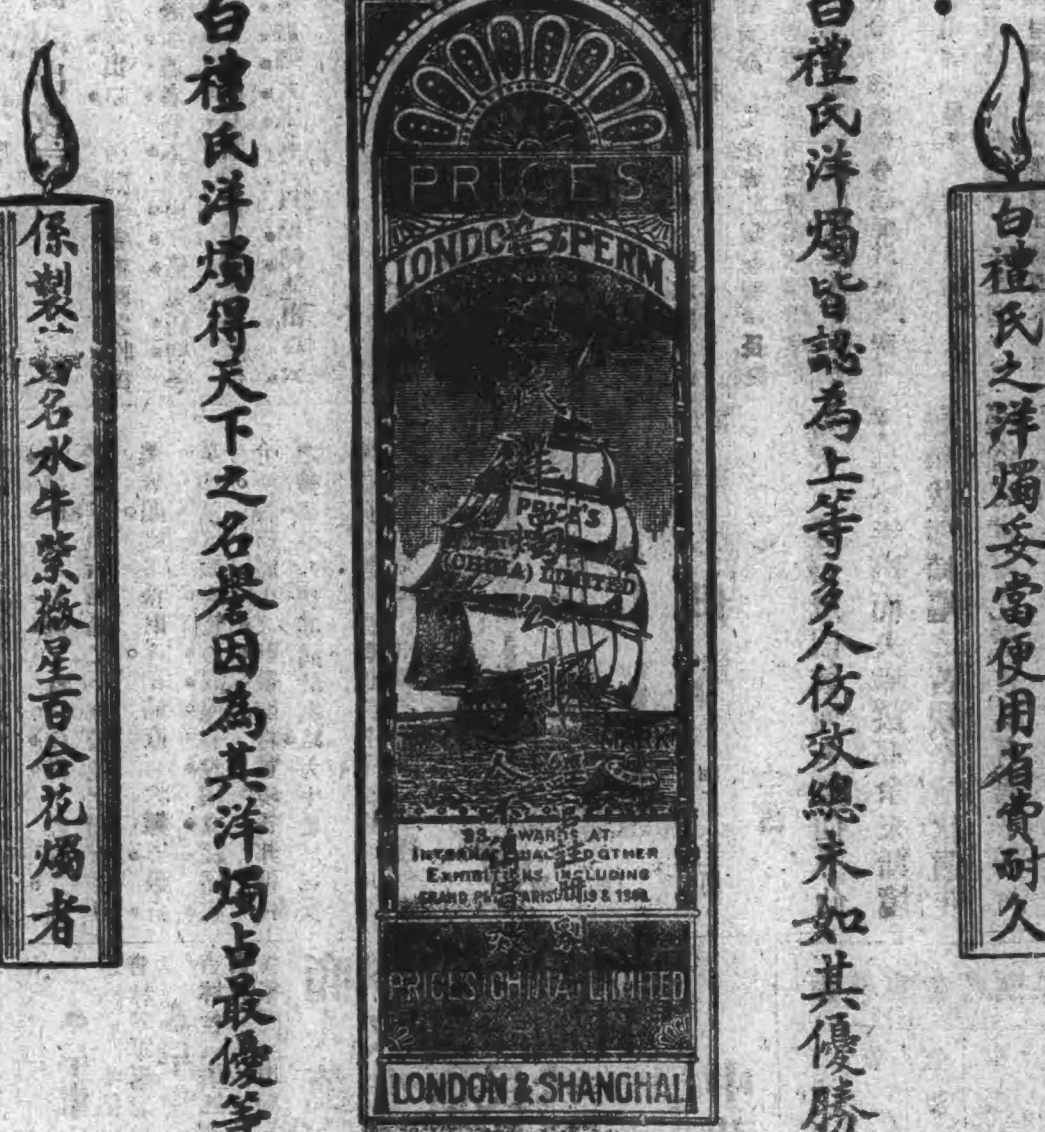 白禮氏之洋燭妥當便用省費耐久
白禮氏洋燭皆認為上等多人彷效總未如其優勝
PRICES
LONDON SPERM
PRICE'S
(CHINA) LIMITED
AWARDS AT
INTERNATIONAL AND OTHER
EXHIBITIONS INCLUDING
PRICES (CHINA) LIMITED
LONDON & SHANGHAI
白禮氏洋燭得天下之名譽因為其洋燭占最優等
係製名水牛紫薇星百合花燭者